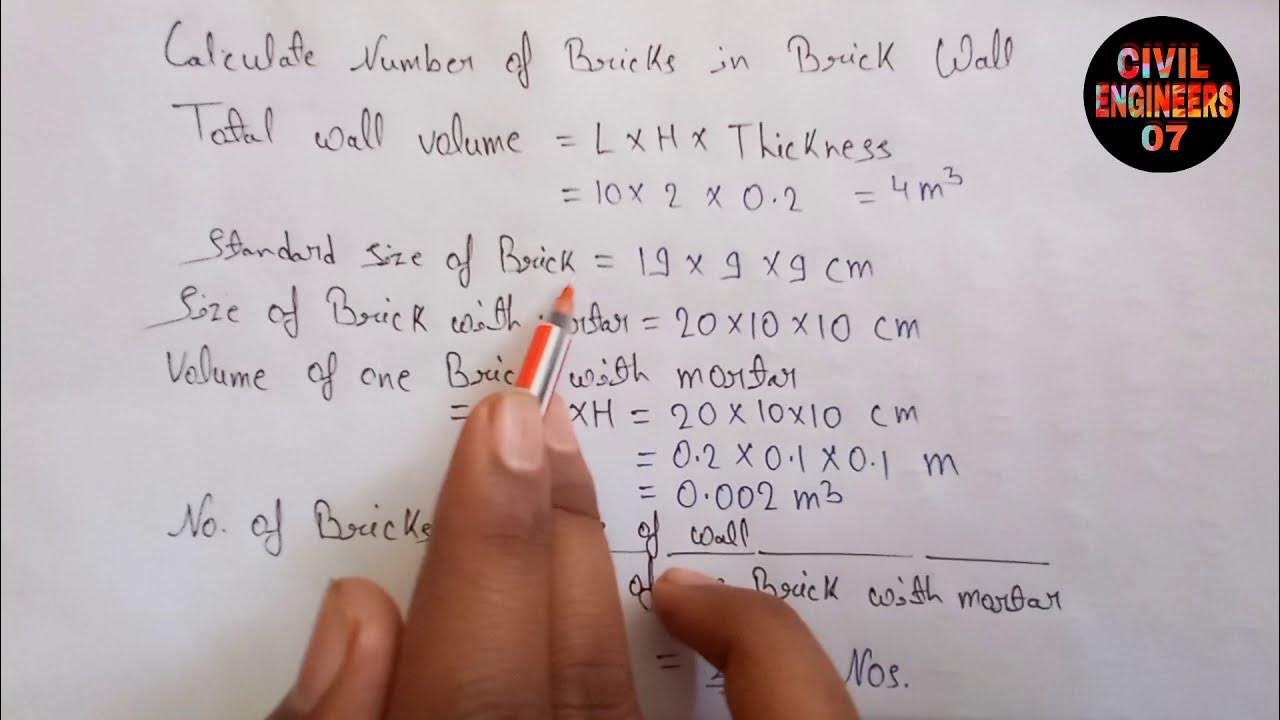 Calculate Number of Bricks in Brick Wall
Total wall volume = L × H × Thickness
= 10 × 2 × 0.2 = 4 m³
Standard size of Brick = 19 × 9 × 9 cm
Size of Brick with = 20 × 10 × 10 cm
Volume of one with mortar
= × H = 20 × 10 × 10 cm
= 0.2 × 0.1 × 0.1 m
= 0.002 m³
No. of Bricks of wall
of Brick with mortar
= Nos.
CIVIL
ENGINEERS
07